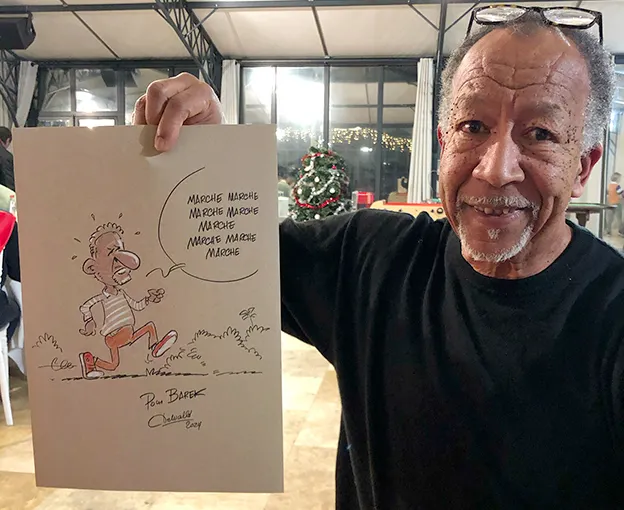 MARCHE MARCHE
MARCHE MARCHE
MARCHE
MARCHE MARCHE
MARCHE
POUR BAREK
2024